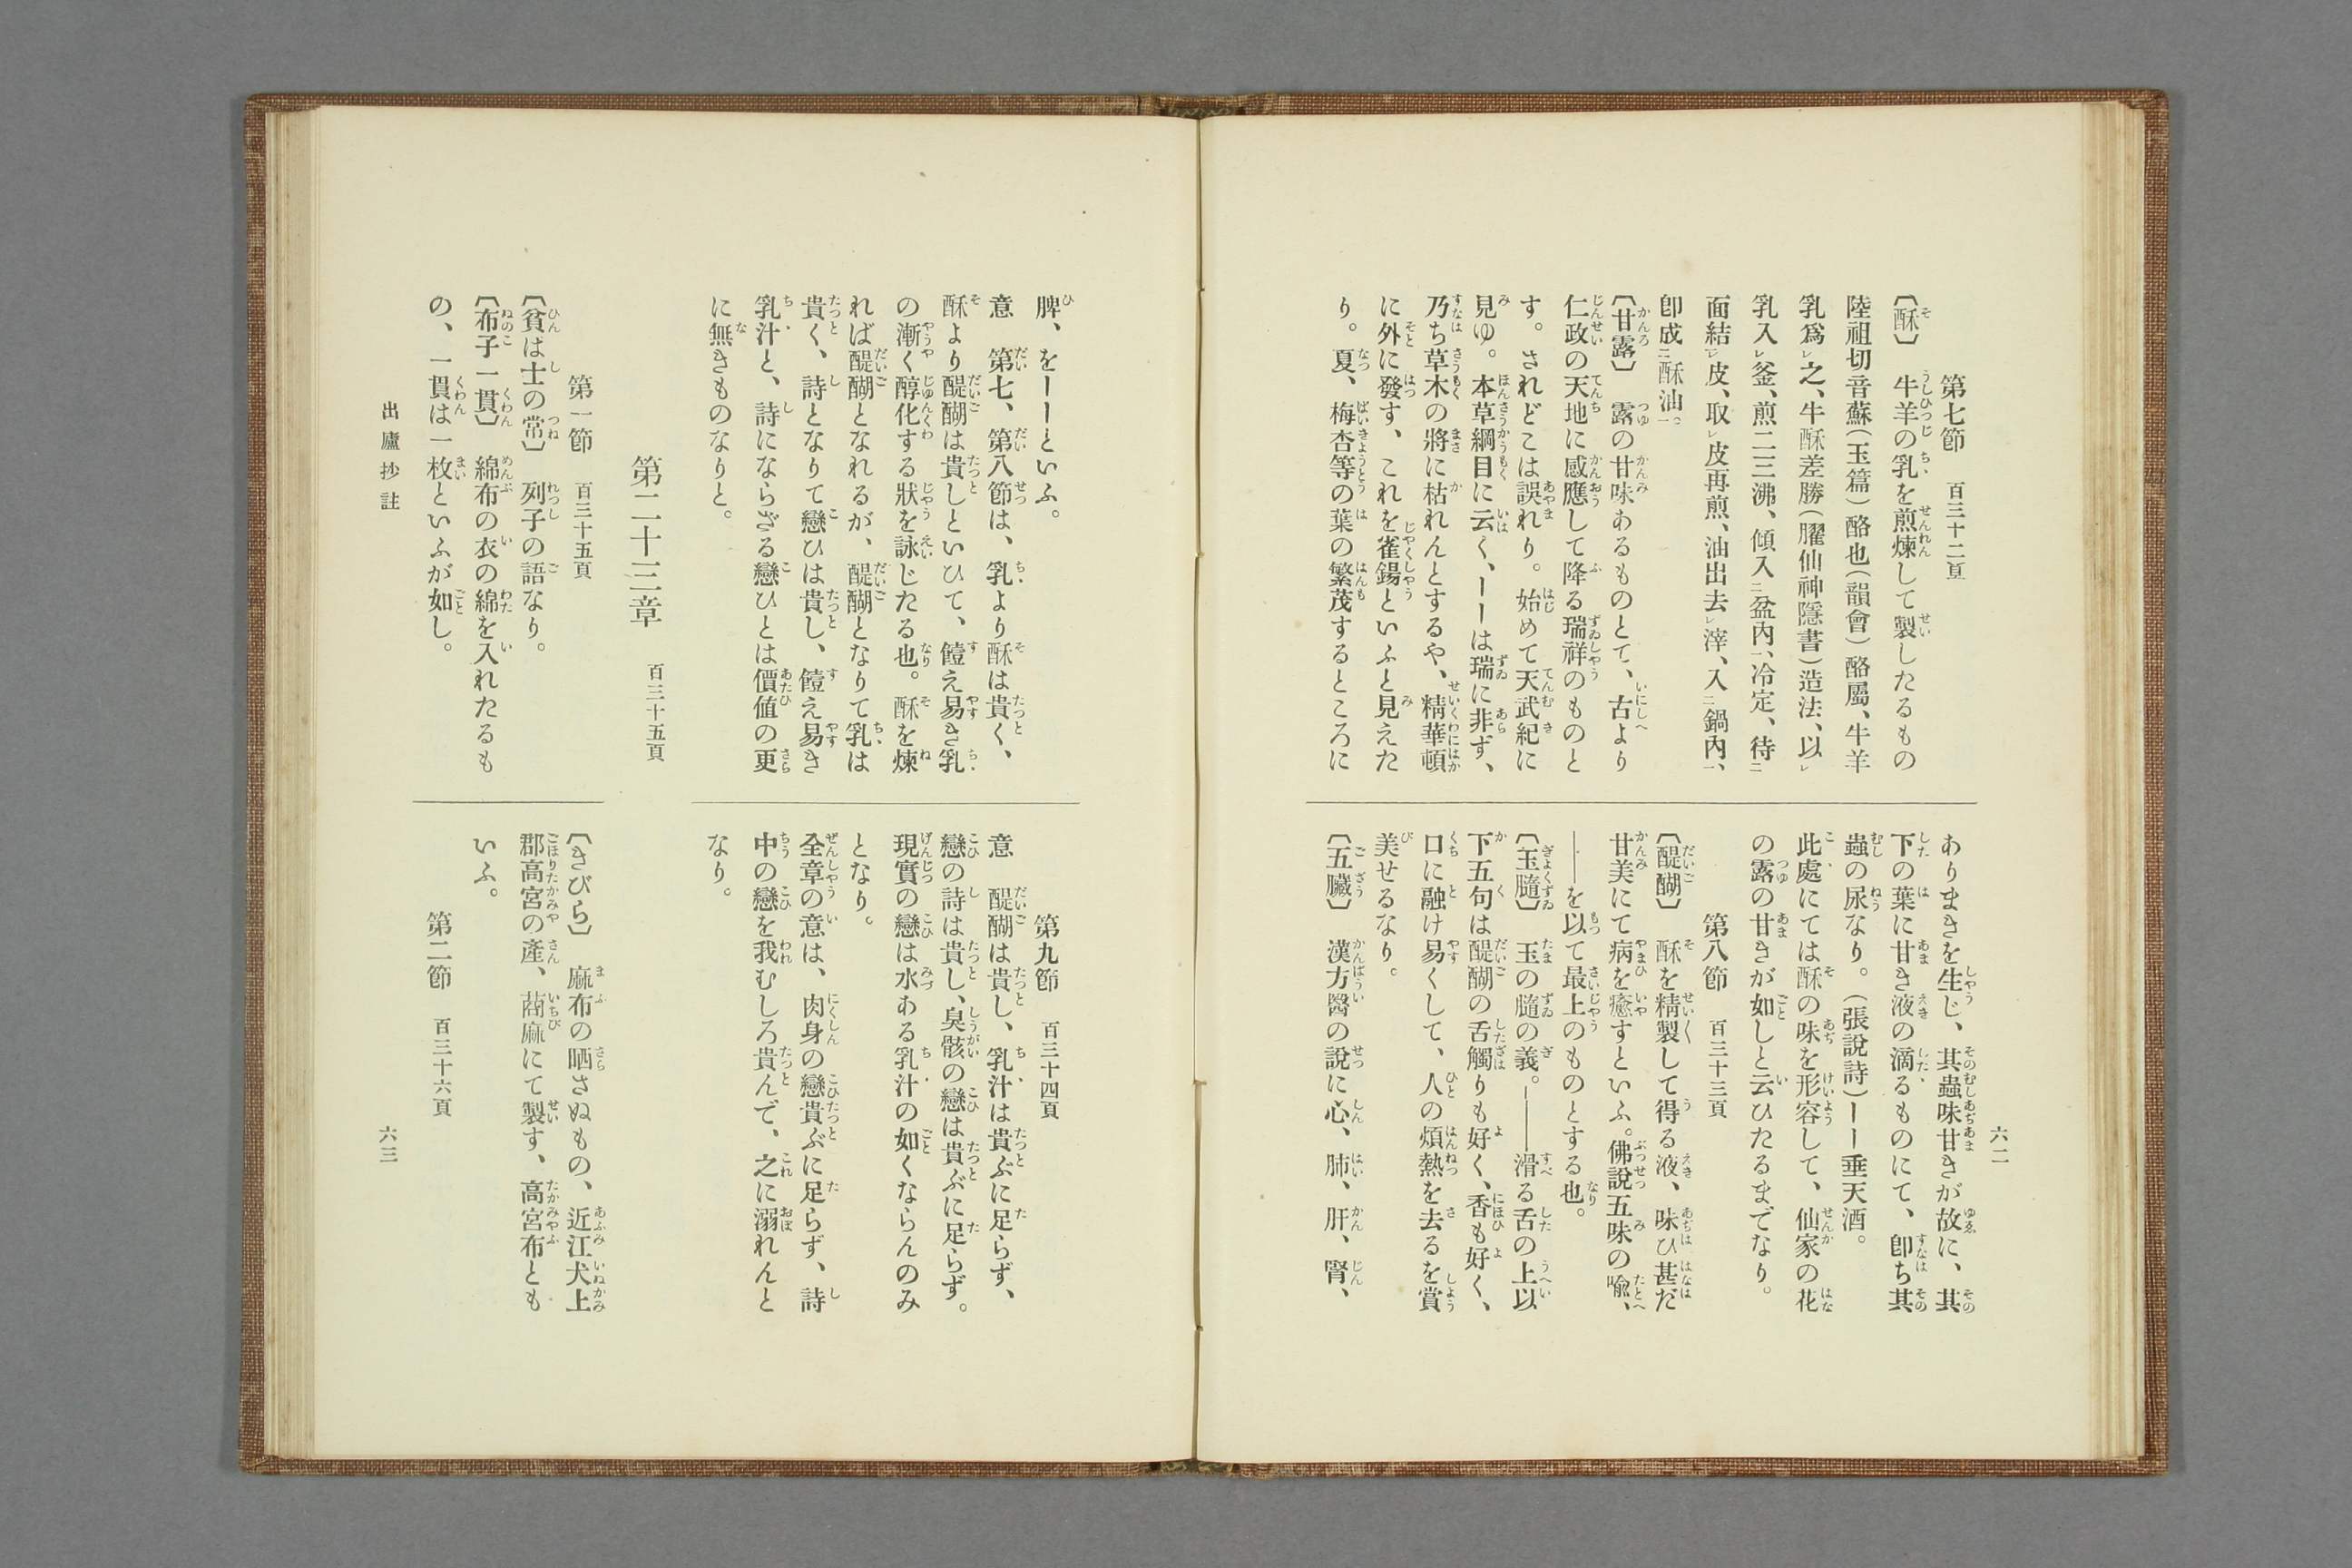 第七節　百三十二頁
〔酥〕　牛羊の乳を煎煉して製したるもの
陸祖切音蘇（玉篇）酪也（韻會）酪屬、牛羊
乳爲㆑之、牛酥差勝（臞仙神隱書）造法、以㆑
乳入㆑釜、煎二三沸、傾入㆓盆內㆒、冷定、待㆓
面結㆑皮、取㆑皮再煎、油出去㆑滓、入㆓鍋內㆒、
卽成㆓酥油㆒。
〔甘露〕　露の甘味あるものとて、古より
仁政の天地に感應して降る瑞祥のものと
す。されどこは誤れり。始めて天武紀に
見ゆ。本草綱目に云く、ーーは瑞に非ず、
乃ち草木の將に枯れんとするや、精華頓
に外に發す、これを雀餳といふと見えた
り。夏、梅杏等の葉の繁茂するところに
ありまきを生じ、其蟲味甘きが故に、其
下の葉に甘き液の滴るものにて、卽ち其
蟲の尿なり。（張說詩）ーー垂天酒。
此處にては酥の味を形容して、仙家の花
の露の甘きが如しと云ひたるまでなり。
第八節　百三十三頁
〔醍醐〕　酥を精製して得る液、味ひ甚だ
甘美にて病を癒すといふ。佛說五味の喩、
――を以て最上のものとする也。
〔玉髓〕　玉の髓の義。――滑る舌の上以
下五句は醍醐の舌觸りも好く、香も好く、
口に融け易くして、人の煩熱を去るを賞
美せるなり。
〔五臟〕　漢方醫の說に心、肺、肝、腎、
六二
脾、をーーといふ。
意　第七、第八節は、乳より酥は貴く、
酥より醍醐は貴しといひて、饐え易き乳
の漸く醇化する狀を詠じたる也。酥を煉
れば醍醐となれるが、醍醐となりて乳は
貴く、詩となりて戀ひは貴し、饐え易き
乳汁と、詩にならざる戀ひとは價値の更
に無きものなりと。
第九節　百三十四頁
意　醍醐は貴し、乳汁は貴ぶに足らず、
戀の詩は貴し、臭骸の戀は貴ぶに足らず。
現實の戀は水ある乳汁の如くならんのみ
となり。
全章の意は、肉身の戀貴ぶに足らず、詩
中の戀を我むしろ貴んで、之に溺れんと
なり。
第二十三章　百三十五頁
第一節　百三十五頁
〔貧は士の常〕　列子の語なり。
〔布子一貫〕　綿布の衣の綿を入れたるも
の、一貫は一枚といふが如し。
〔きびら〕　麻布の晒さぬもの、近江犬上
郡高宮の產、䔛麻にて製す、高宮布とも
いふ。
第二節　百三十六頁
出廬抄註
六三